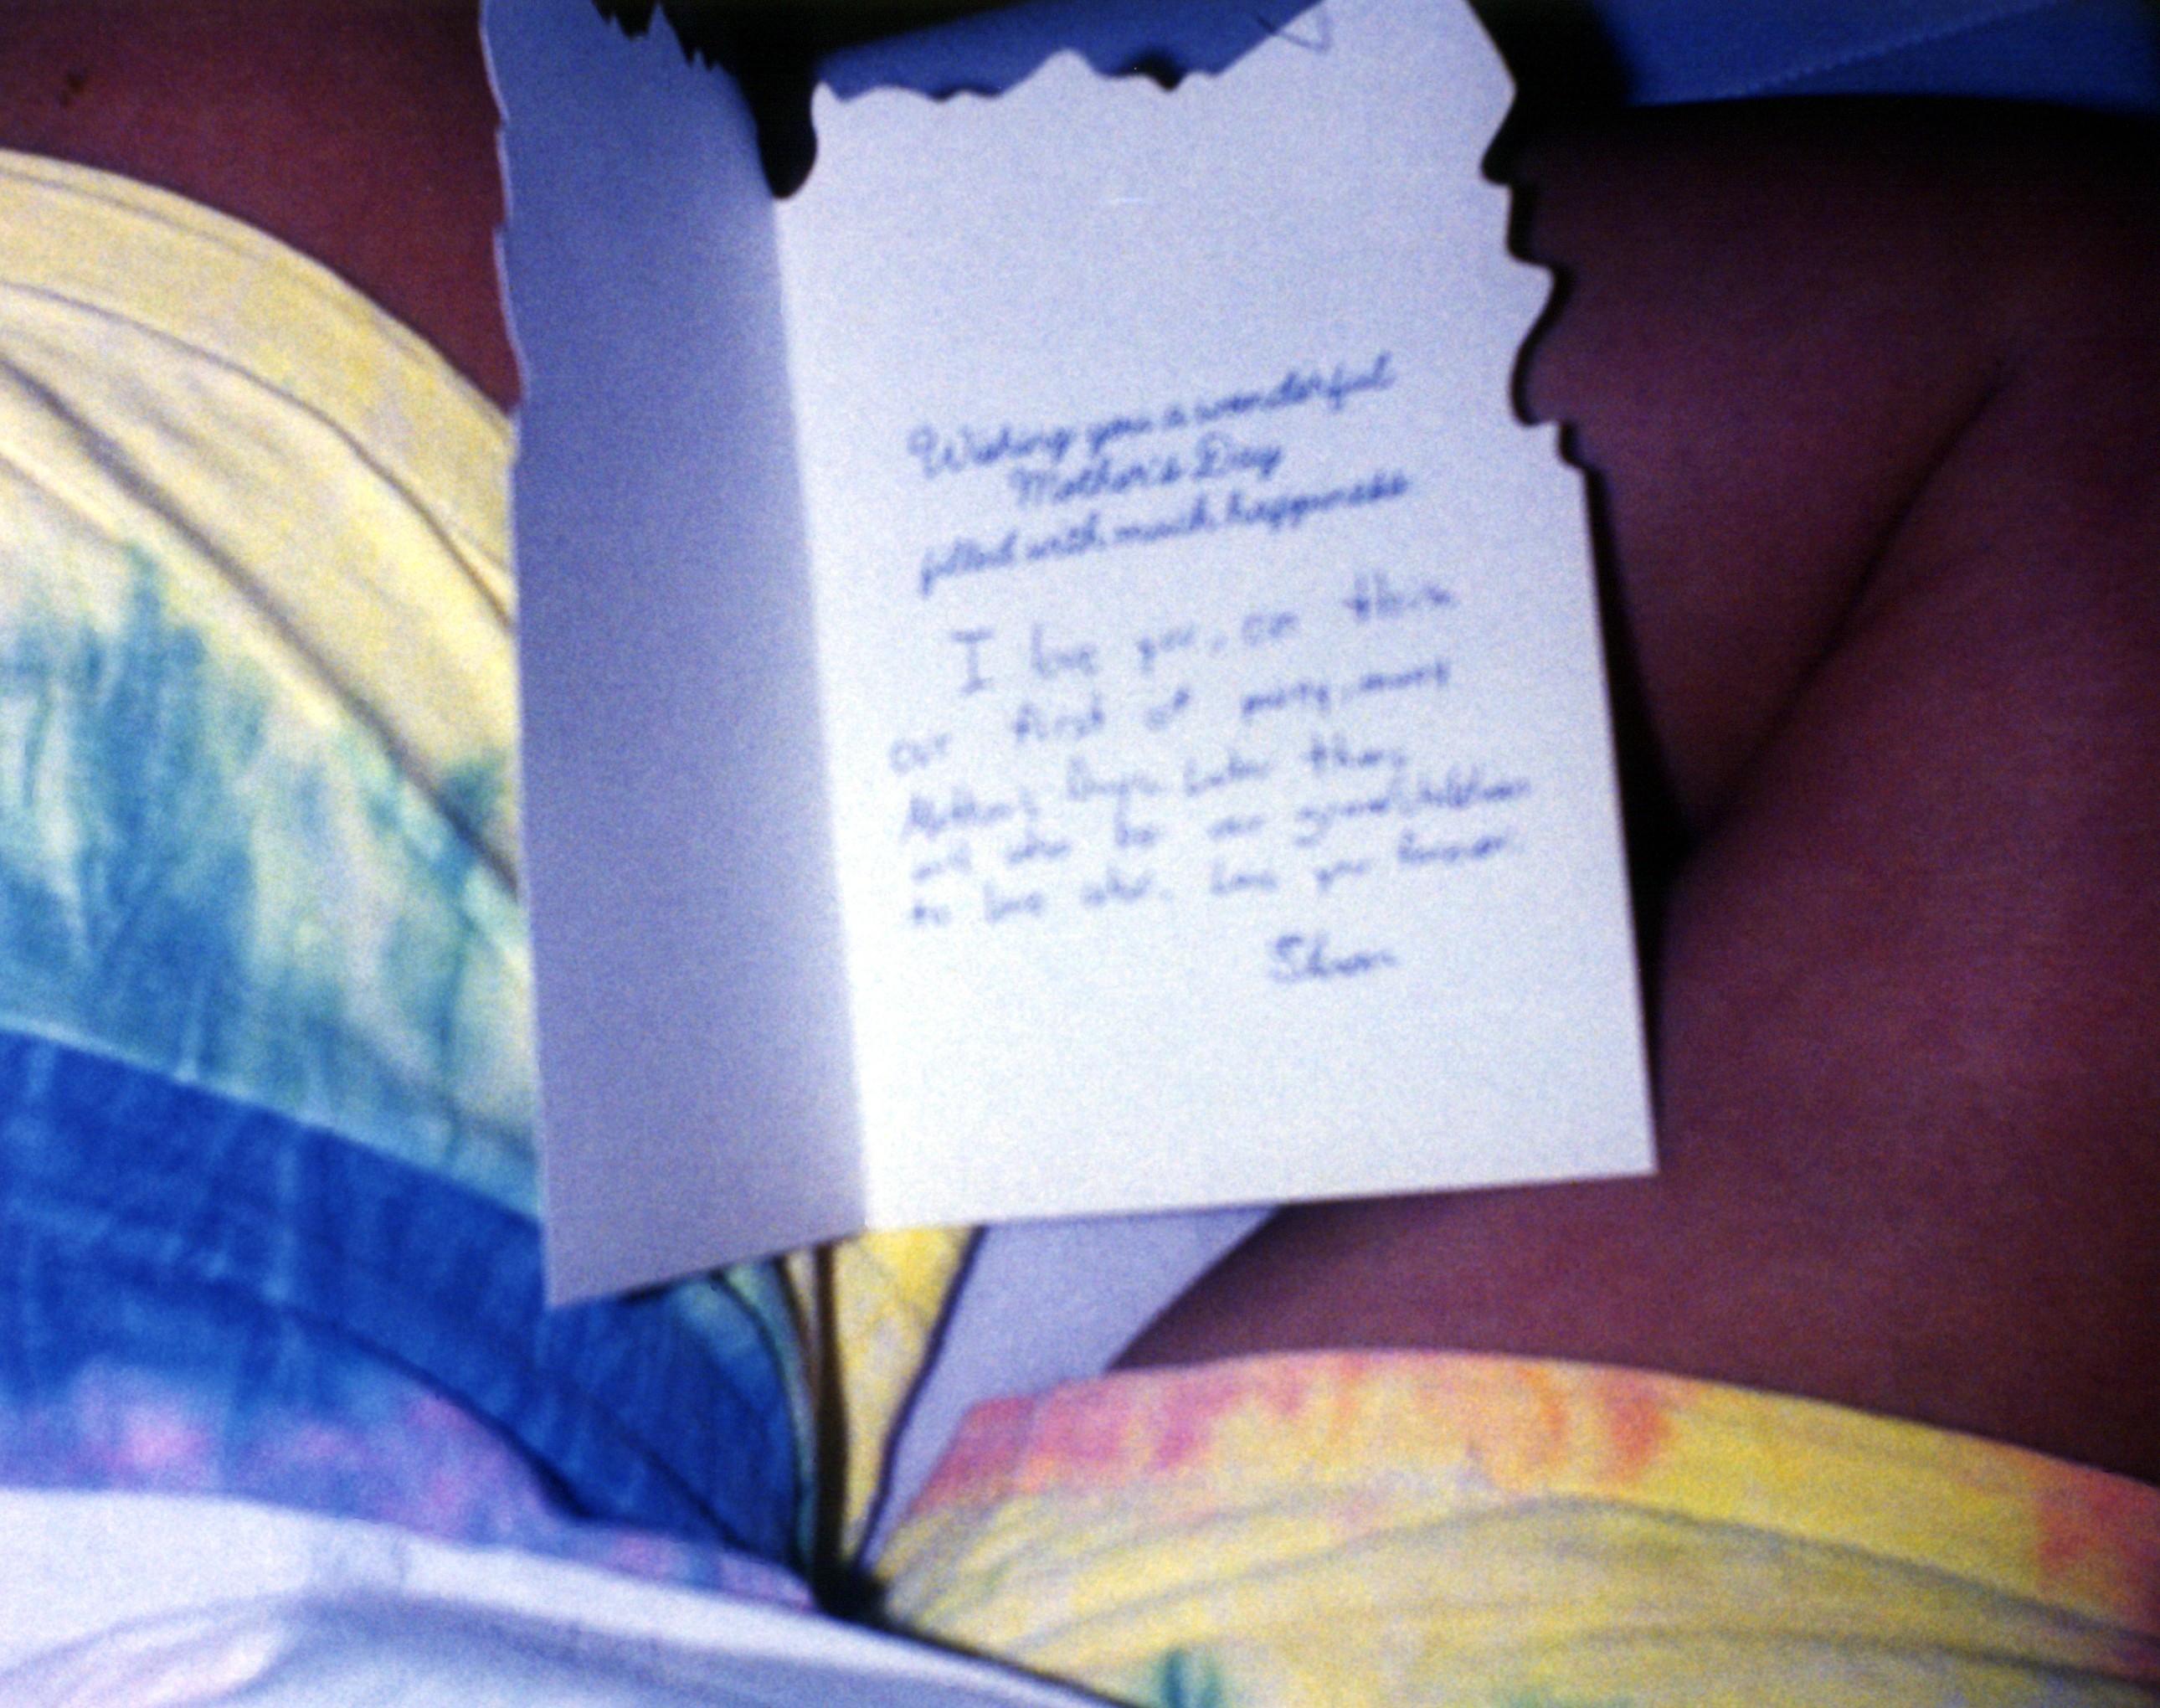 Wishing you a wonderful
Mother's Day
filled with much happiness
I love you, on this
our first of many, many
Mother's Days. Later they
will also be our grandchildren
to love also. Love you forever.